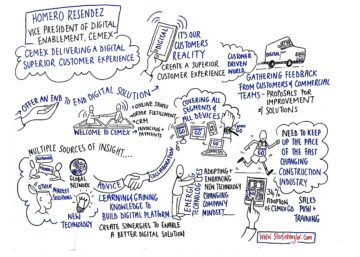 HOMERO RESENDEZ
VICE PRESIDENT OF DIGITAL
ENABLEMENT, CEMEX
CEMEX DELIVERING A DIGITAL
SUPERIOR CUSTOMER EXPERIENCE
DIGITAL
IT'S OUR
CUSTOMERS
REALITY
CREATE A SUPERIOR
CUSTOMER EXPERIENCE
CUSTOMER
DRIVEN
WORLD
DIGITAL
GATHERING FEEDBACK
FROM CUSTOMERS & COMMERCIAL
TEAMS - PROPOSALS FOR
IMPROVEMENT
& SOLUTIONS
OFFER AN END TO END DIGITAL SOLUTION
ONLINE STORES
ORDER FULFILMENT
CRM
INVOICING &
PAYMENTS
WELCOME TO CEMEX
COVERING ALL
SEGMENTS &
ALL DEVICES
GO
GO
GO
NEED TO KEEP
UP THE PACE
OF THE FAST
CHANGING
CONSTRUCTION
INDUSTRY
MULTIPLE SOURCES OF INSIGHT....
GLOBAL
NETWORK
OTHER
MARKET
SOLUTIONS
NEW
TECHNOLOGY
ADVICE
COLLABORATION
LEARNING & GAINING
KNOWLEDGE TO
BUILD DIGITAL PLATFORM
CREATE SYNERGIES TO ENABLE
A BETTER DIGITAL SOLUTION
EMERGING
TECHNOLOGIES
ADOPTING &
EMBRACING
NEW TECHNOLOGY
CHANGING
COMPANY
MINDSET....
34%
ADOPTION
OF CEMEX GO
SALES
PUSH &
TRAINING